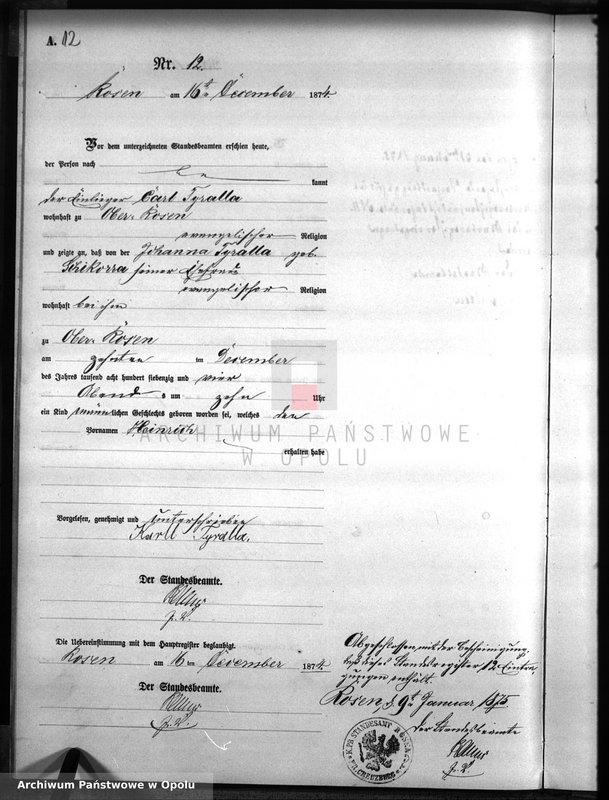 A. 12
Nr. 12.
Rosen am 16ten December 1874.
Vor dem unterzeichneten Standesbeamten erschien heute,
der Person nach
kannt
der Einlieger Carl Tyralla
wohnhaft zu Ober-Rosen
evangelischer Religion
und zeigte an, daß von der Johanna Tyralla geb.
Schikorra seiner Ehefrau
evangelischer Religion
wohnhaft bei ihm
zu Ober-Rosen
am zehnten im December
des Jahres tausend acht hundert siebenzig und vier
Abends um zehn Uhr
ein Kind männlichen Geschlechts geboren worden sei, welches den
Vornamen Heinrich
erhalten habe
ARCHIWUM PAŃSTWOWE
W OPOLU
Vorgelesen, genehmigt und unterschrieben
Karl Tyralla.
Der Standesbeamte.
Die Uebereinstimmung mit dem Hauptregister beglaubigt.
Rosen am 16ten December 1874.
Der Standesbeamte.
Abgeschlossen mit der Bescheinigung,
daß dieses Standesregister 12 Eintra-
gungen enthält.
Rosen, d. 9t Januar 1875
Der Standesbeamte
K.PR. STANDESAMT ROSEN
KR. CREUZBURG
Archiwum Państwowe w Opolu